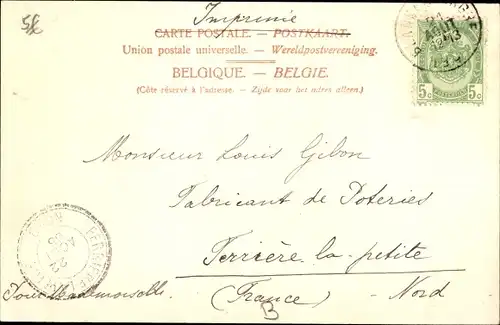 5€
Imprimé
CARTE POSTALE. — POSTKAART.
Union postale universelle. — Wereldpostvereeniging.
BELGIQUE. — BELGIE.
(Côté réservé à l'adresse. — Zijde voor het adres alleen.)
21
AOUT
5c 5c
Monsieur Louis Gibon
Fabricant de Poteries
Ferrière la petite
(France) - Nord
Pour Mademoiselle.
B